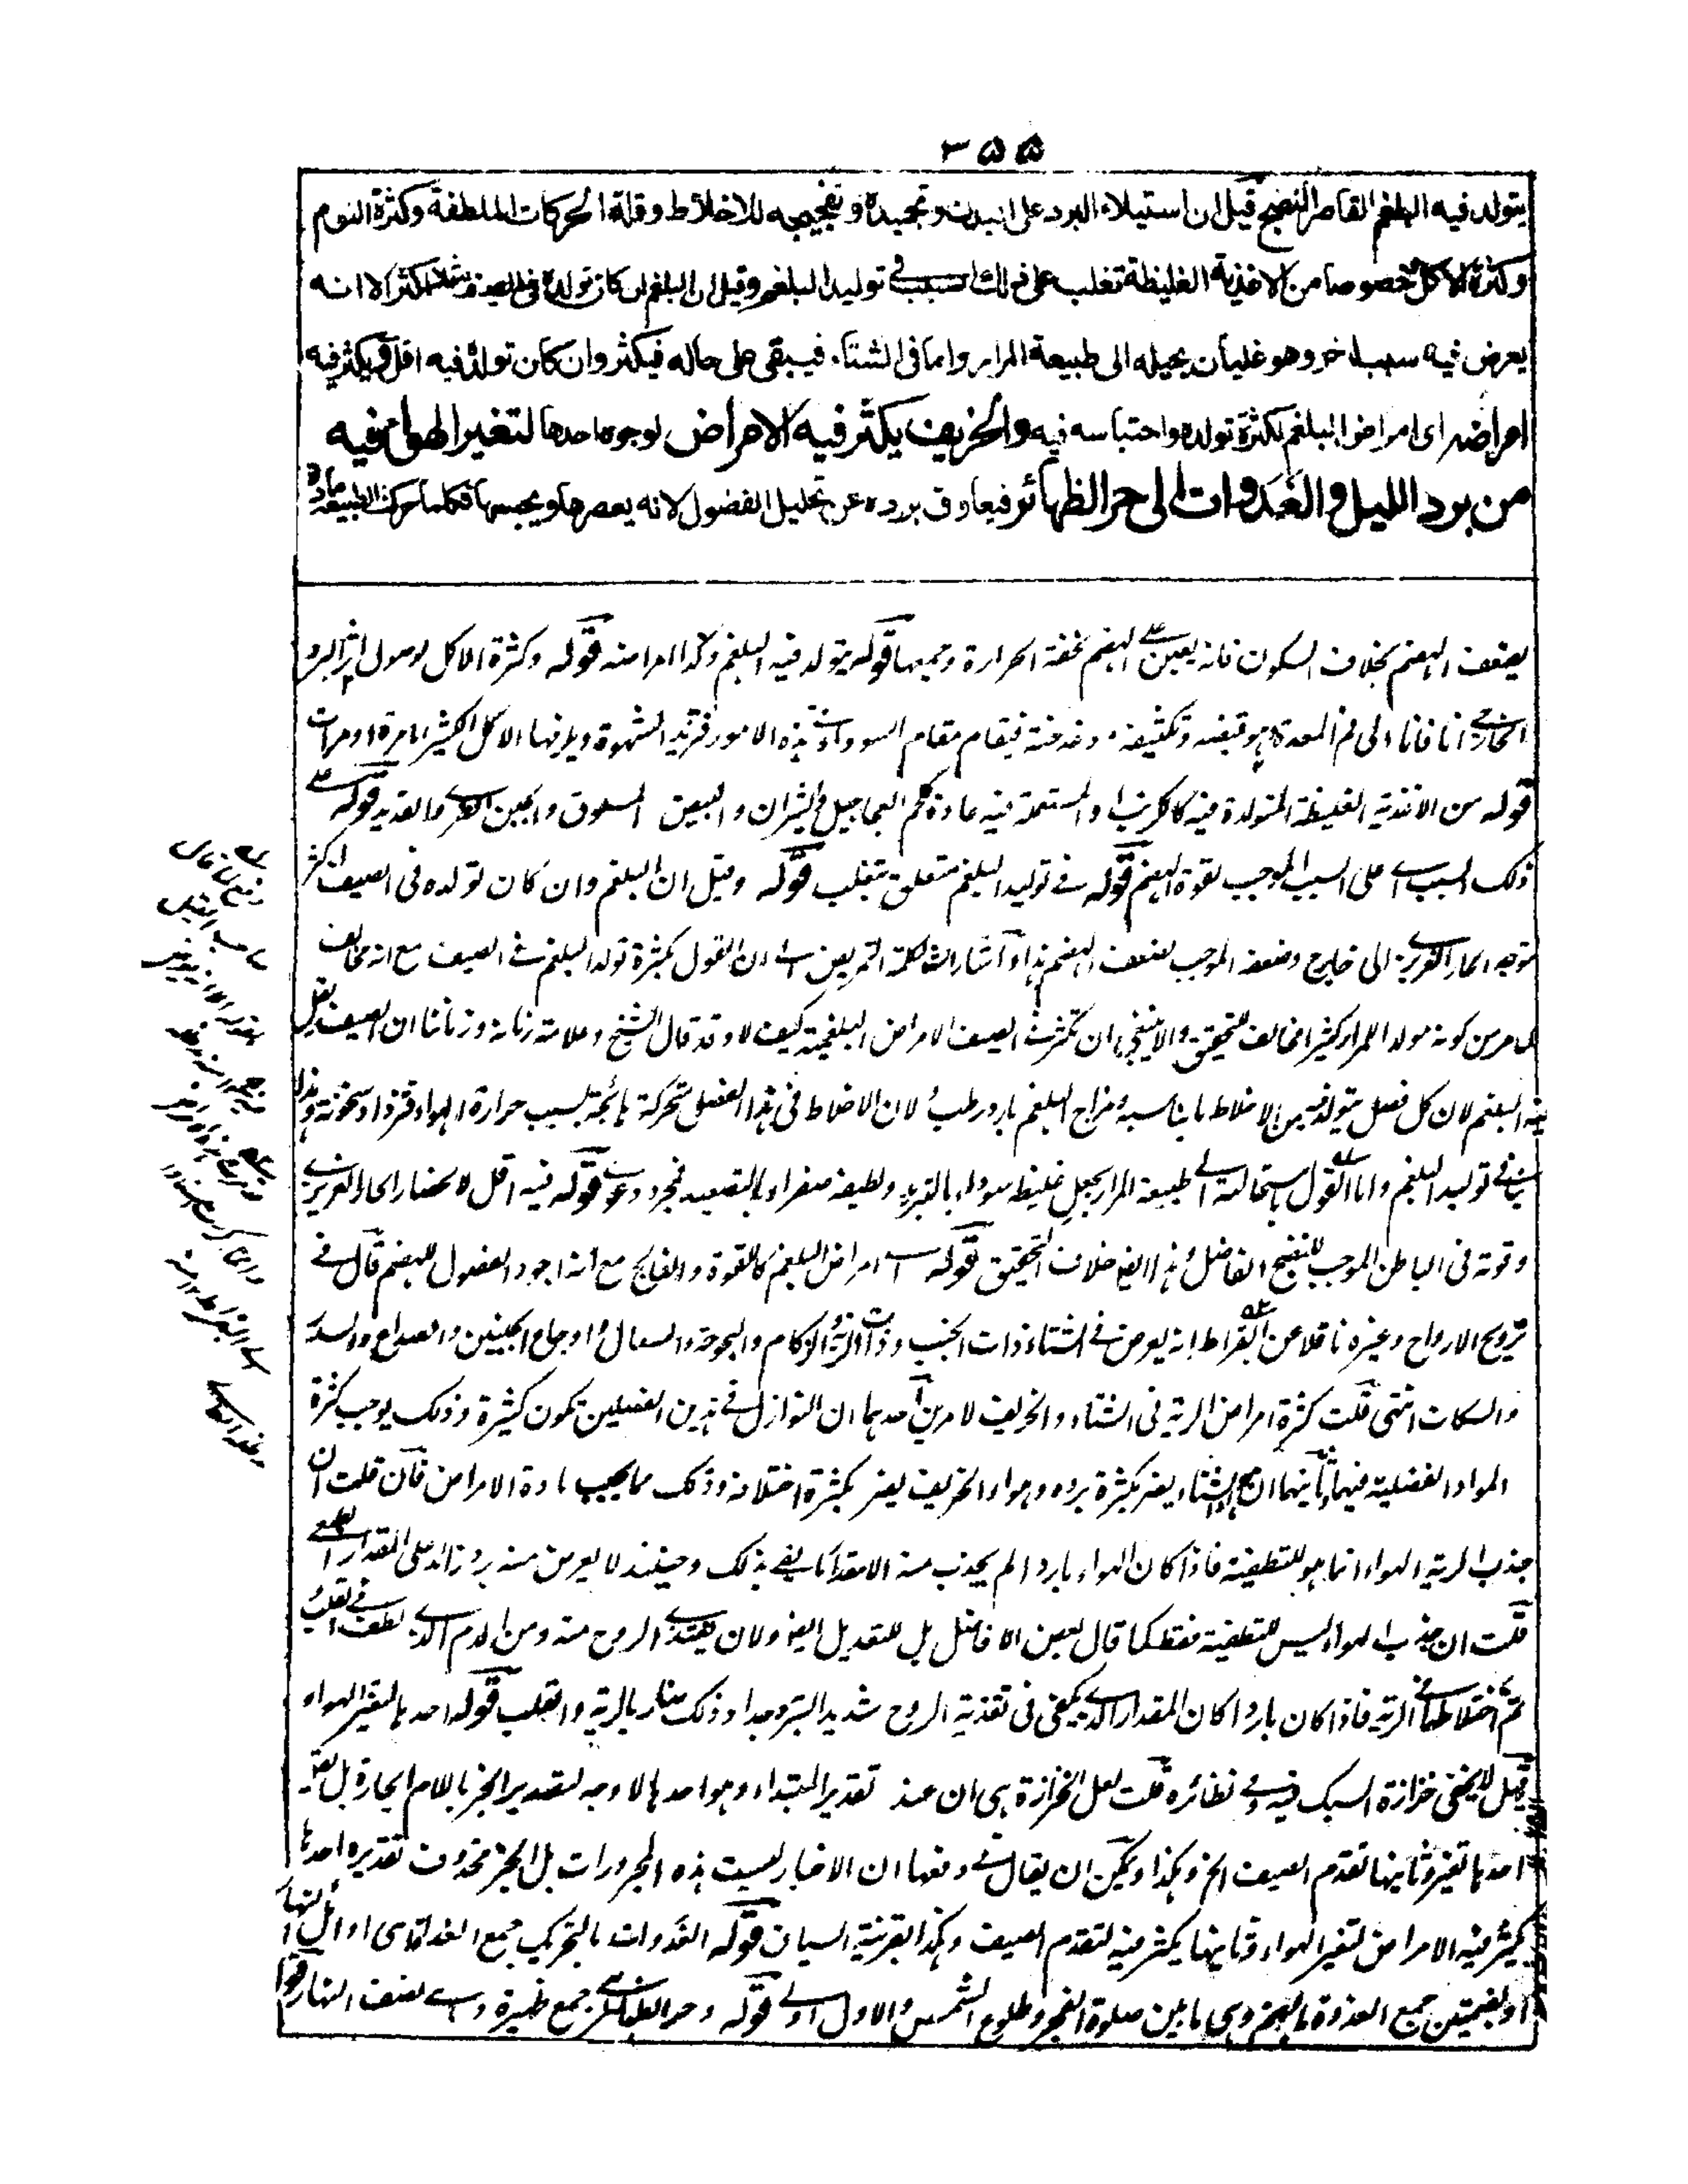 ٣٥٥
يتولد فيه البلغم القاصر النضج قيل ان استيلاء البرد على البدن وتجميده وتفجيجه للاخلاط وقلة الحركات الملطفة وكثرة النوم
وكثرة الاكل خصوصا من الاغذية الغليظة تغلب على ذلك السبب في توليد البلغم وقيل ان البلغم ان كان تولده في الصيف اكثر الا انه
يعرض فيه سبب اخر وهو غليان يحيله الى طبيعة المرار واما في الشتاء فيبقى على حاله فيكثر وان كان تولده فيه اقل ويكثر فيه
امراضه اى امراض البلغم لكثرة تولده واحتباسه فيه والخريف يكثر فيه الامراض لوجوه احدها لتغير الهواء فيه
من برد الليل والغدوات الى حر الظهائر فيعاوق برده عن تحليل الفضول لانه يعصرها ويحبسها فكلما حركت الطبيعة مادة
يضعف الهضم بخلاف السكون فانه يعين على الهضم لخفة الحرارة وجمعها قوله يتولد فيه البلغم وكذا امراضه قوله وكثرة الاكل لوصول اثر البرد
الخارجي انا فانا الى فم المعدة وهو قبضه وتكثيفه ودغدغته فيقام مقام السوداء في هذه الامور فتزيد الشهوة ويلزمها الاكل الكثير اما مرة او مرات
قوله من الاغذية الغليظة المتولدة فيه كالكرنب او المستعملة فيه عادة كلحم العجاجيل والثيران والبيض المسلوق والجبن الطرى والقديد قوله على
ذلك السبب اى على السبب الموجب لقوة الهضم قوله في توليد البلغم متعلق بتغلب قوله وقيل ان البلغم وان كان تولده فى الصيف اكثر
لتوجه الحار الغريزى الى خارج وضعفه الموجب لضعف الهضم هذا واشار الشارح بكلمة التمريض الى ان القول بكثرة تولد البلغم في الصيف مع انه مخالف
لما مر من كونه مولدا للمرار كثيرا مخالف للتحقيق والا ينبغي ان تكثر في الصيف الامراض البلغمية كيف لا وقد قال الشيخ وعلامة زمانه وزماننا ان الصيف يقل
فيه البلغم لان كل فصل يتولد فيه من الاخلاط ما يناسبه ومزاج البلغم بارد رطب لان الاخلاط فى هذا الفصل متحركة هائجة بسبب حرارة الهواء فتزداد سخونة وهذا
ينافي توليد البلغم واما القول باستحالته الى طبيعة المرار بجعل غليظه سوداء بالتبريد ولطيفه صفراء بالتصعيد فمجرد دعوى قوله فيه اقل لانحصار الحار الغريزي
وقوته فى الباطن الموجب للنضج الفاضل وهذا ايضا خلاف التحقيق قوله اى امراض البلغم كاللقوة والفالج مع انه اجود الفصول للهضم قال في
ترويح الارواح وغيره ناقلا عن البقراط انه يعرض في الشتاء ذات الجنب وذات الرية والزكام والبحوحة والسعال واوجاع الجنبين والصداع والسدر
والسكات انتهى قلت كثرة امراض الرية فى الشتاء والخريف لامرين احدهما ان النوازل في هذين الفصلين تكون كثيرة وذلك يوجب كثرة
المواد الفضلية فيها وثانيهما ان هواء الشتاء يضر بكثرة برده وهواء الخريف يضر بكثرة اختلافه وذلك مما يجب مادة الامراض فان قلت ان
جذب الرية الهواء انما هو للتطفية فاذا كان الهواء باردا لم يجذب منه الا مقدار ما يفي بذلك وحينئذ لا يعرض منه برد زائد على المقدار الطبعي
قلت ان جذب الهواء ليس للتطفية فقط كما قال بعض الافاضل بل للتعديل ايضا ولان يغتذى الروح منه ومن الدم الذى لطف في القلب
ثم اختلاطهما في الرية فاذا كان باردا كان المقدار الذى يكفى فى تغذية الروح شديد التبريد جدا وذلك ضار بالرية والقلب قوله احدها لتغير الهواء
قيل لا يخفى خزازة السبك فيه وفي نظائره قلت لعل الخزازة هى ان عند تقدير المبتداء وهو احدها لا وجه لتصدير الخبر باللام الجارة بل يقال
احدها تغير وثانيها تقدم الصيف الخ وهكذا ويمكن ان يقال في دفعها ان الاخبار ليست هذه المجرورات بل الخبر محذوف تقديره احدها
يكثر فيه الامراض لتغير الهواء وثانيها يكثر فيه لتقدم الصيف وهكذا بقرينة السياق قوله الغدوات بالتحريك جمع الغداة اى اوائل النهار
او بضمتين جمع الغدوة بالضم وهى ما بين صلوة الفجر وطلوع الشمس والاول اولى قوله وحر الظهائر جمع ظهيرة وهى نصف النهار قوله